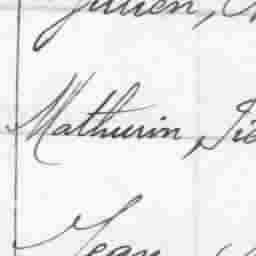 Julien,
Mathurin,
Jean